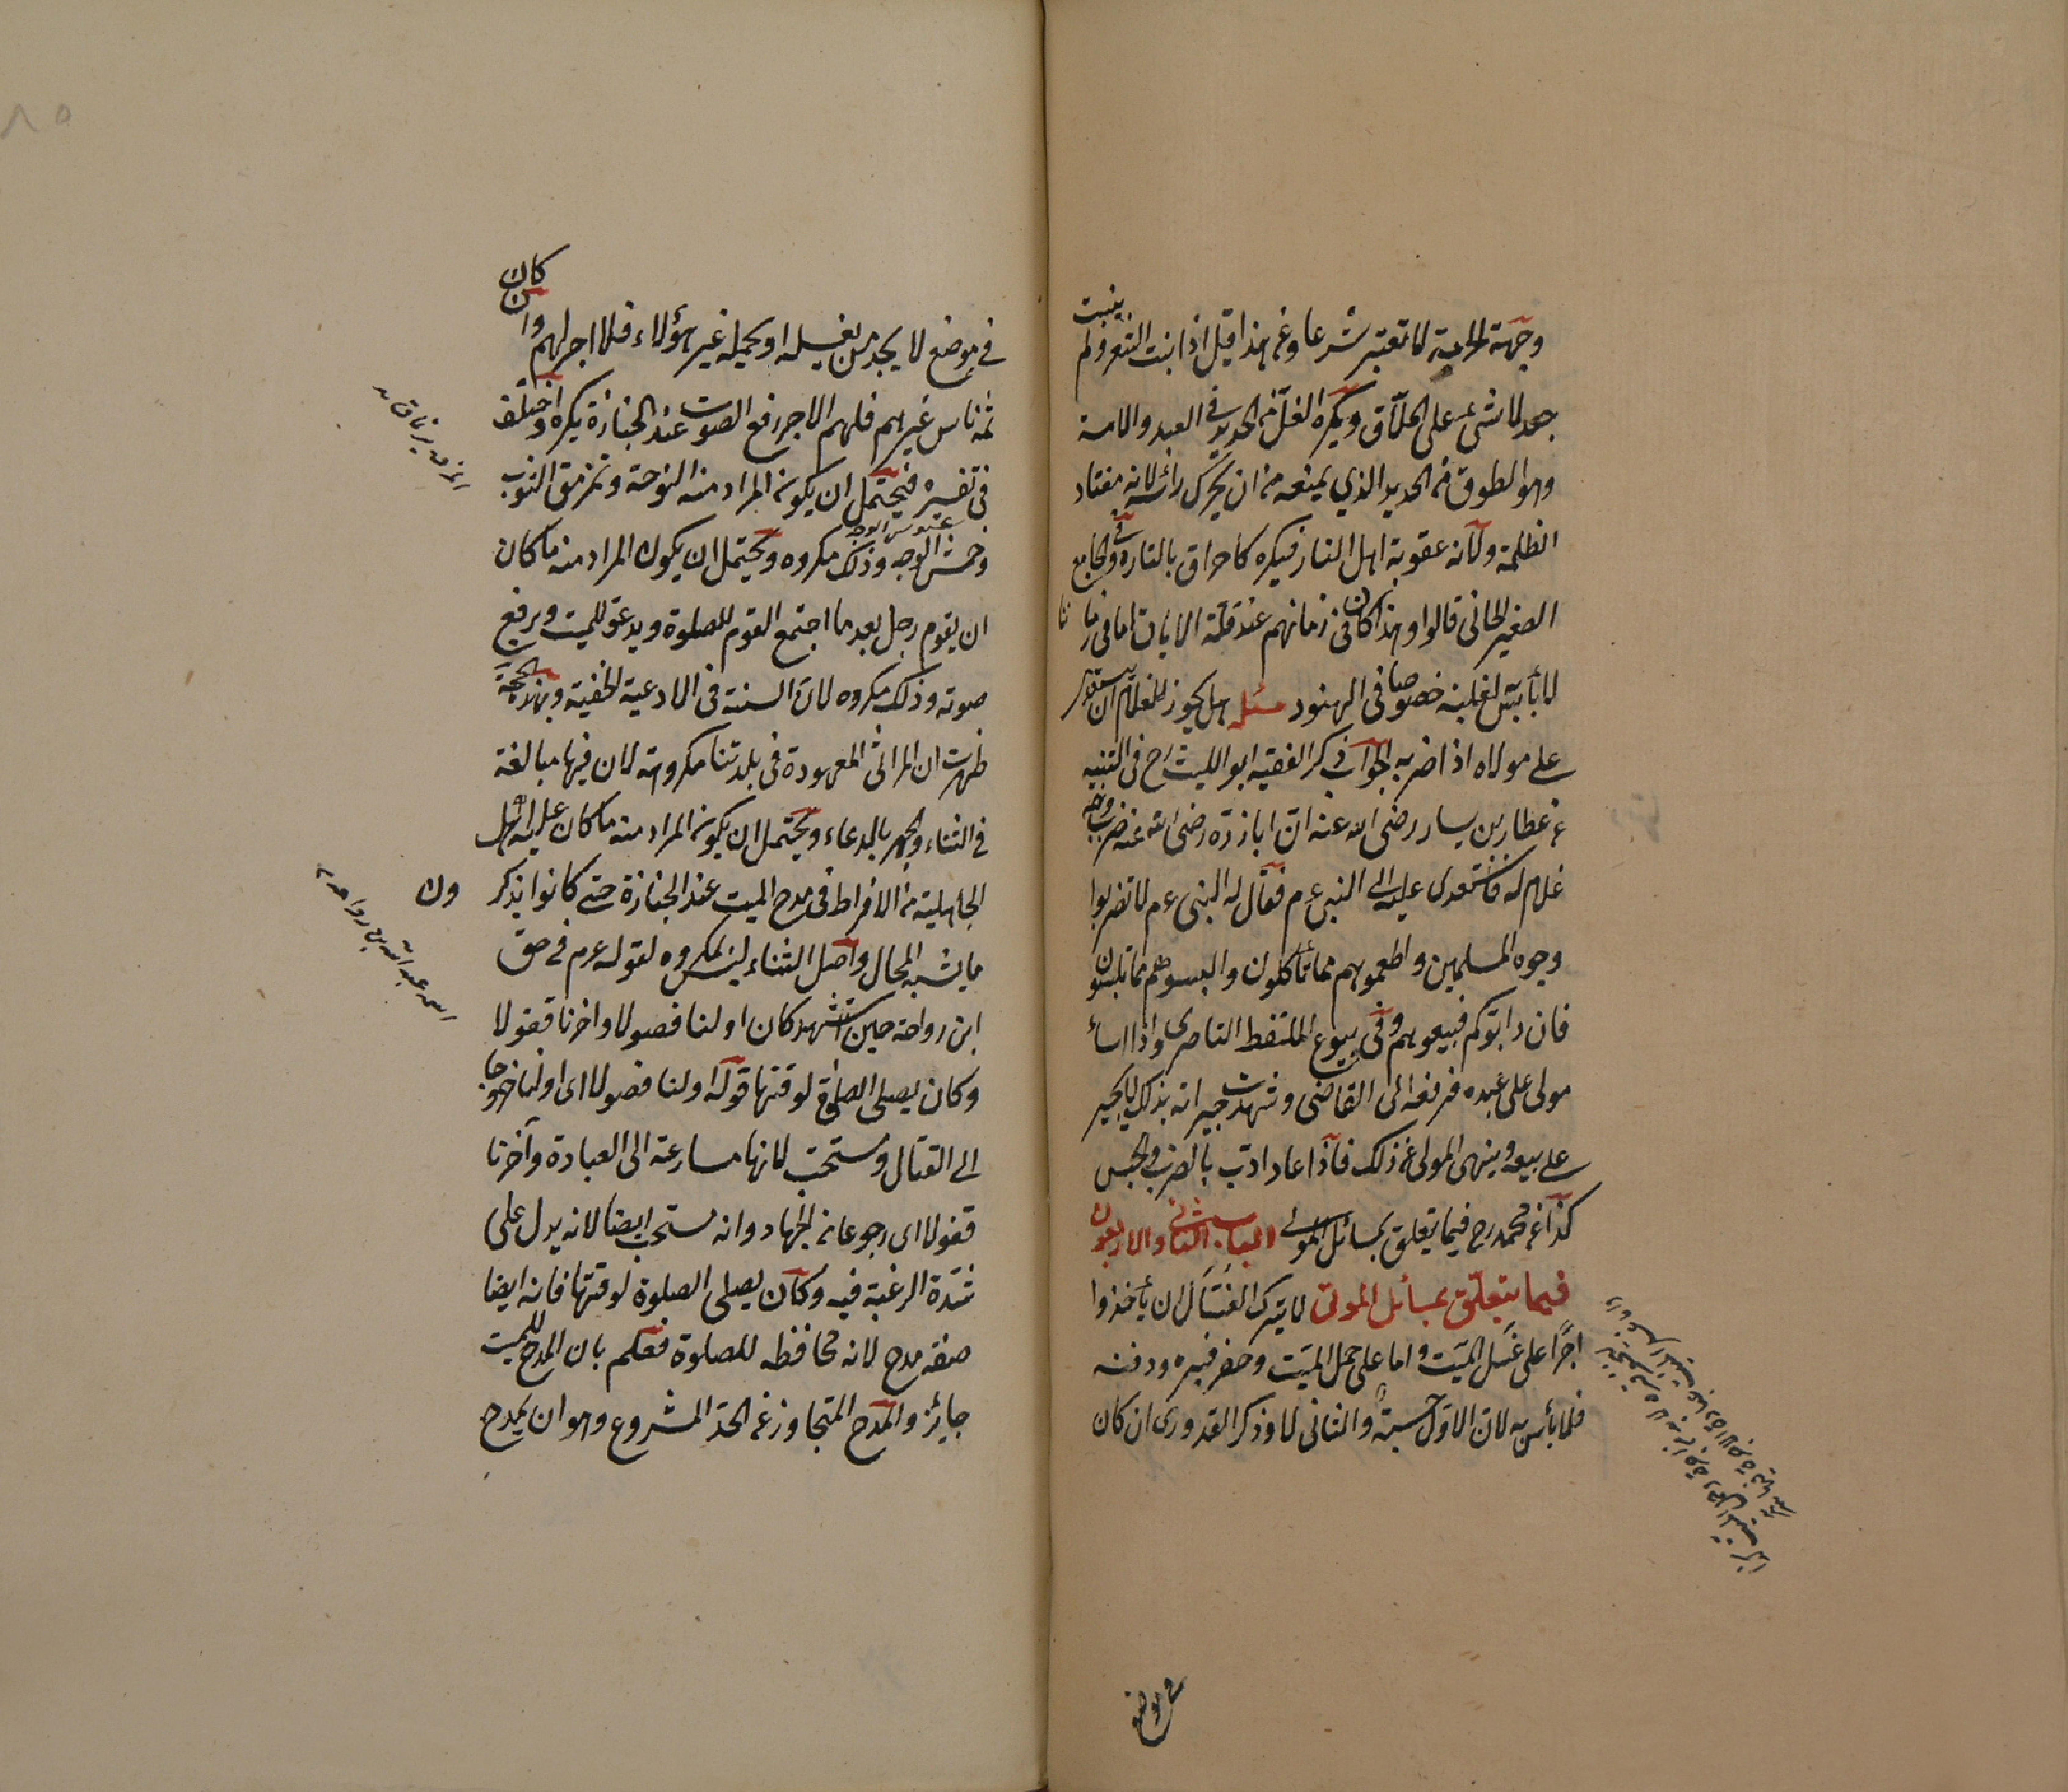 وجهة المراحمة لا تعتبر شرعا وعن هذا قيل اذا نبت الشعر ولم ينبت
يجب لا شئ على الحلاق ويكره الغل من الحديد في العبد والامة
وهو الطوق من الحديد الذي يمنعه من ان يحرك رأسه لانه معتاد
الظلمة ولانه عقوبة اهل النار فيكره كاحراق بالنار وفي الجامع
الصغير الخاني قالوا وهذا كان في زمانهم عند قلة الاباق اما في زماننا
لا بأس لغلبته خصوصا في الهنود مسئله هل يجوز للغلام ان
على مولاه اذا ضربه الجواب ذكر الفقيه ابو الليث رح في التنبيه
عن عطار بن يسار رضى الله عنه ان اباذر رضى الله عنه ضرب وجه
غلام له فاستعدى عليه الى النبى عم فقال له النبى عم لا تضربوا
وجوه المسلمين واطعموهم مما تأكلون والبسوهم مما تلبسون
فان رابوكم فبيعوهم وفى بيوع الملتقط الناصرى واذا اساء
مولى على عبده فرفعه الى القاضى وشهدت جيرانه بذلك لا يجبر
على بيعه وينهى المولى عن ذلك فاذا عاد ادب بالضرب والحبس
كذا عن محمد رح فيما يتعلق بمسائل الموتى الباب الثانى والاربعون
فيما يتعلق بمسائل الموتى لا يترك الغسال ان يأخذوا
اجرا على غسل الميت واما على حمل الميت وحفر قبره ودفنه
فلا بأس به لان الاول حسبة والثانى لا وذكر القدورى ان كان
في موضع
كان
في موضع لا يجد من يغسله او يحمله غير هؤلاء فلا اجر لهم وان
ثمه ناس غيرهم فلهم الاجر رفع الصوت عند الجنازة يكره واختلف
فى تفسيره فيحتمل ان يكون المراد منه النوحة وتمزيق الثوب
وخمش الوجه وذلك مكروه ويحتمل ان يكون المراد منه ما كان
ان يقوم رجل بعد ما اجتمع القوم للصلوة ويدعو للميت ويرفع
صوته وذلك مكروه لان السنة فى الادعية الخفية وبهذه الحجة
ظهرت ان المراثى المعهودة فى بلدتنا مكروهة لان فيها مبالغة
فى الثناء والجهر بالدعاء ويحتمل ان يكون المراد منه ما كان عليه اهل
الجاهلية من الافراط فى مدح الميت عند الجنازة حتى كانوا يذكرون
ما يشبه المحال واصل الثناء ليس بمكروه لقوله عم في حق
ابن رواحة حين استشهد كان اولنا فصولا واخرنا قفولا
وكان يصلى الصلوة لوقتها قوله اولنا فصولا اى اولنا خروجا
الى القتال ومستحب لانها مسارعة الى العبادة وآخرنا
قفولا اى رجوعا من الجهاد وانه مستحب ايضا لانه يدل على
شدة الرغبة فيه وكان يصلى الصلوة لوقتها فانه ايضا
صفة مدح لانه محافظه للصلوة فعلم بان المدح للميت
جايز والمدح المتجاوز عن الحد المشروع وهو ان يمدح
اسمه عبد الله بن رواحة